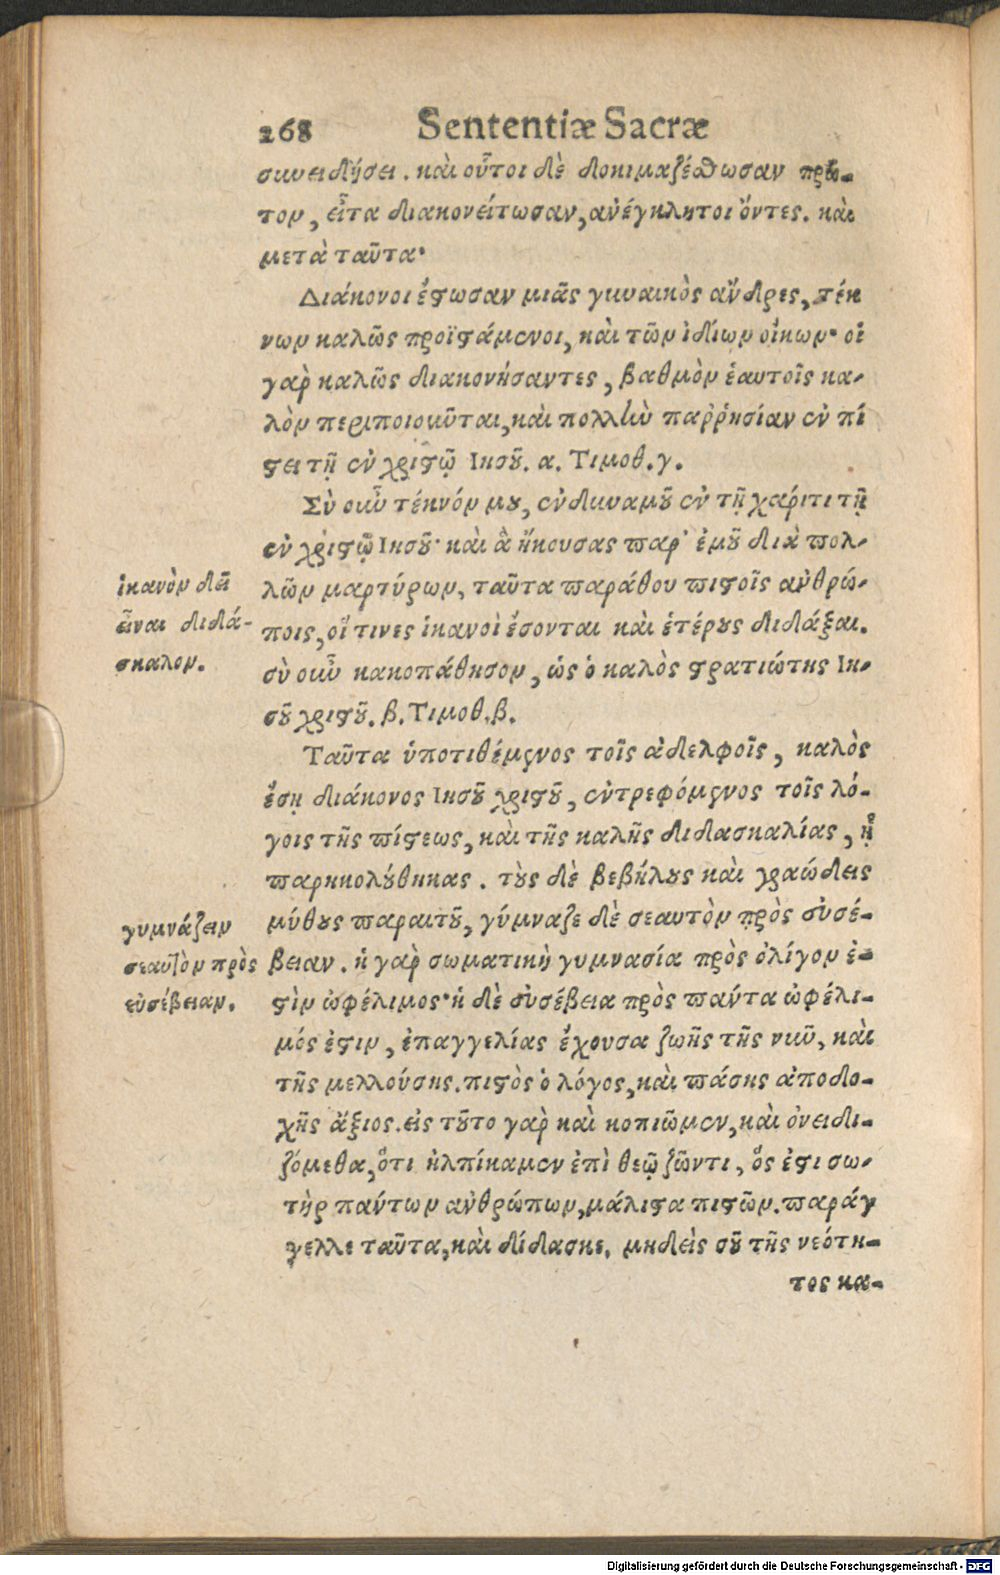 268 Sententiæ Sacræ
συνειδήσει. καὶ οὗτοι δὲ δοκιμαζέσθωσαν πρῶ-
τον, εἶτα διακονείτωσαν, ἀνέγκλητοι ὄντες. καὶ
μετὰ ταῦτα·
Διάκονοι ἔστωσαν μιᾶς γυναικὸς ἄνδρες, τέκ
νων καλῶς προϊστάμενοι, καὶ τῶν ἰδίων οἴκων· οἱ
γὰρ καλῶς διακονήσαντες, βαθμὸν ἑαυτοῖς κα-
λὸν περιποιοῦνται, καὶ πολλὴν παῤῥησίαν ἐν πί
στει τῇ ἐν χριστῷ Ἰησοῦ. α. Τιμοθ. γ.
Σὺ οὖν τέκνόν μου, ἐνδυναμοῦ ἐν τῇ χάριτι τῇ
ἐν χριστῷ Ἰησοῦ· καὶ ἃ ἤκουσας παρ' ἐμοῦ διὰ πολ-
λῶν μαρτύρων, ταῦτα παράθου πιστοῖς ἀνθρώ-
ποις, οἵ τινες ἱκανοὶ ἔσονται καὶ ἑτέρους διδάξαι.
σὺ οὖν κακοπάθησον, ὡς ὁ καλὸς στρατιώτης Ἰη-
σοῦ χριστοῦ. β. Τιμοθ. β.
ἱκανὸν δεῖ
εἶναι διδά-
σκαλον.
Ταῦτα ὑποτιθέμενος τοῖς ἀδελφοῖς, καλὸς
ἔσῃ διάκονος Ἰησοῦ χριστοῦ, ἐντρεφόμενος τοῖς λό-
γοις τῆς πίστεως, καὶ τῆς καλῆς διδασκαλίας, ᾗ
παρηκολούθηκας. τοὺς δὲ βεβήλους καὶ γραώδεις
μύθους παραιτοῦ, γύμναζε δὲ σεαυτὸν πρὸς εὐσέ-
βειαν. ἡ γὰρ σωματικὴ γυμνασία πρὸς ὀλίγον ἐ-
στὶν ὠφέλιμος· ἡ δὲ εὐσέβεια πρὸς πάντα ὠφέλι-
μός ἐστιν, ἐπαγγελίας ἔχουσα ζωῆς τῆς νῦν, καὶ
τῆς μελλούσης. πιστὸς ὁ λόγος, καὶ πάσης ἀποδο-
χῆς ἄξιος. εἰς τοῦτο γὰρ καὶ κοπιῶμεν, καὶ ὀνειδι-
ζόμεθα, ὅτι ἠλπίκαμεν ἐπὶ θεῷ ζῶντι, ὅς ἐστι σω-
τὴρ πάντων ἀνθρώπων, μάλιστα πιστῶν. παράγ
γελλε ταῦτα, καὶ δίδασκε. μηδεὶς σοῦ τῆς νεότη-
τος κα-
γυμνάζειν
σεαυτὸν πρὸς
εὐσέβειαν.
Digitalisierung gefördert durch die Deutsche Forschungsgemeinschaft - DFG